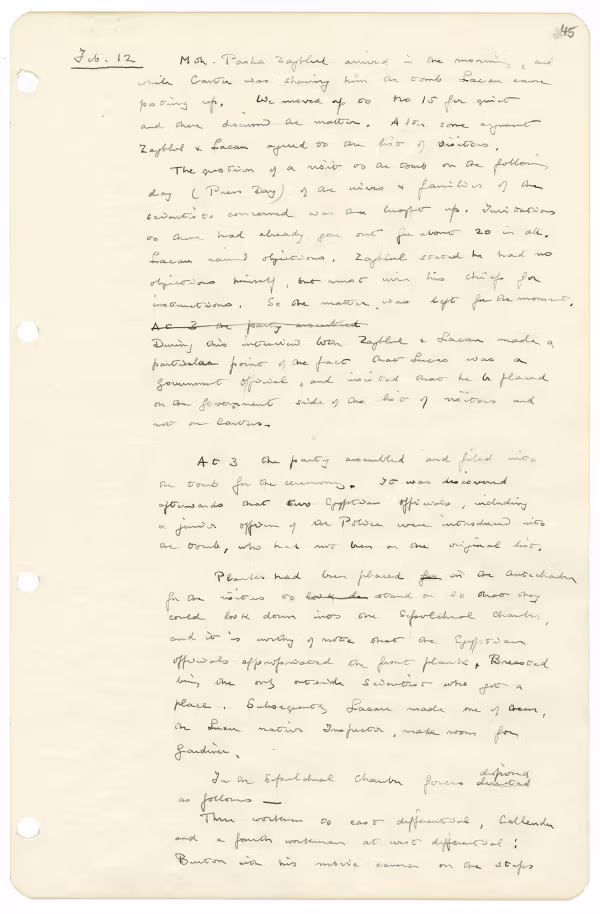 45
Feb. 12 Moh. Pasha Zaghlul arrived in the morning, and
while Carter was shewing him the tomb Lacau came
posting up. We moved up to No 15 for quiet
and there discussed the matter. After some argument
Zaghlul & Lacau agreed to the list of visitors.
The question of a visit to the tomb on the following
day (Press Day) of the wives & families of the
scientists concerned was then brought up. Invitations
to them had already gone out for about 20 in all.
Lacau raised objections. Zaghlul stated he had no
objections himself, but must wire his chiefs for
instructions. So the matter was left for the moment.
At 3 the party assembled
During this interview both Zaghlul & Lacau made a
particular point of the fact that Lucas was a
government official, and insisted that he be placed
on the government side of the list of visitors and
not on Carter's.
At 3 the party assembled and filed into
the tomb for the ceremony. It was discovered
afterwards that two Egyptian officials, including
a junior officer of the Police were introduced into
the tomb, who had not been on the original list.
Planks had been placed for in the Antechamber
for the visitors to look do stand on so that they
could look down into the Sepulchral Chamber,
and it is worthy of note that the Egyptian
officials appropriated the front plank, Breasted
being the only outside scientist who got a
place. Subsequently Lacau made one of them,
the Luxor native Inspector, make room for
Gardiner.
In the Sepulchral Chamber forces directed disposed
as follows —
Three workmen to east differential, Callender
and a fourth workman at west differential;
Burton with his movie camera on the steps